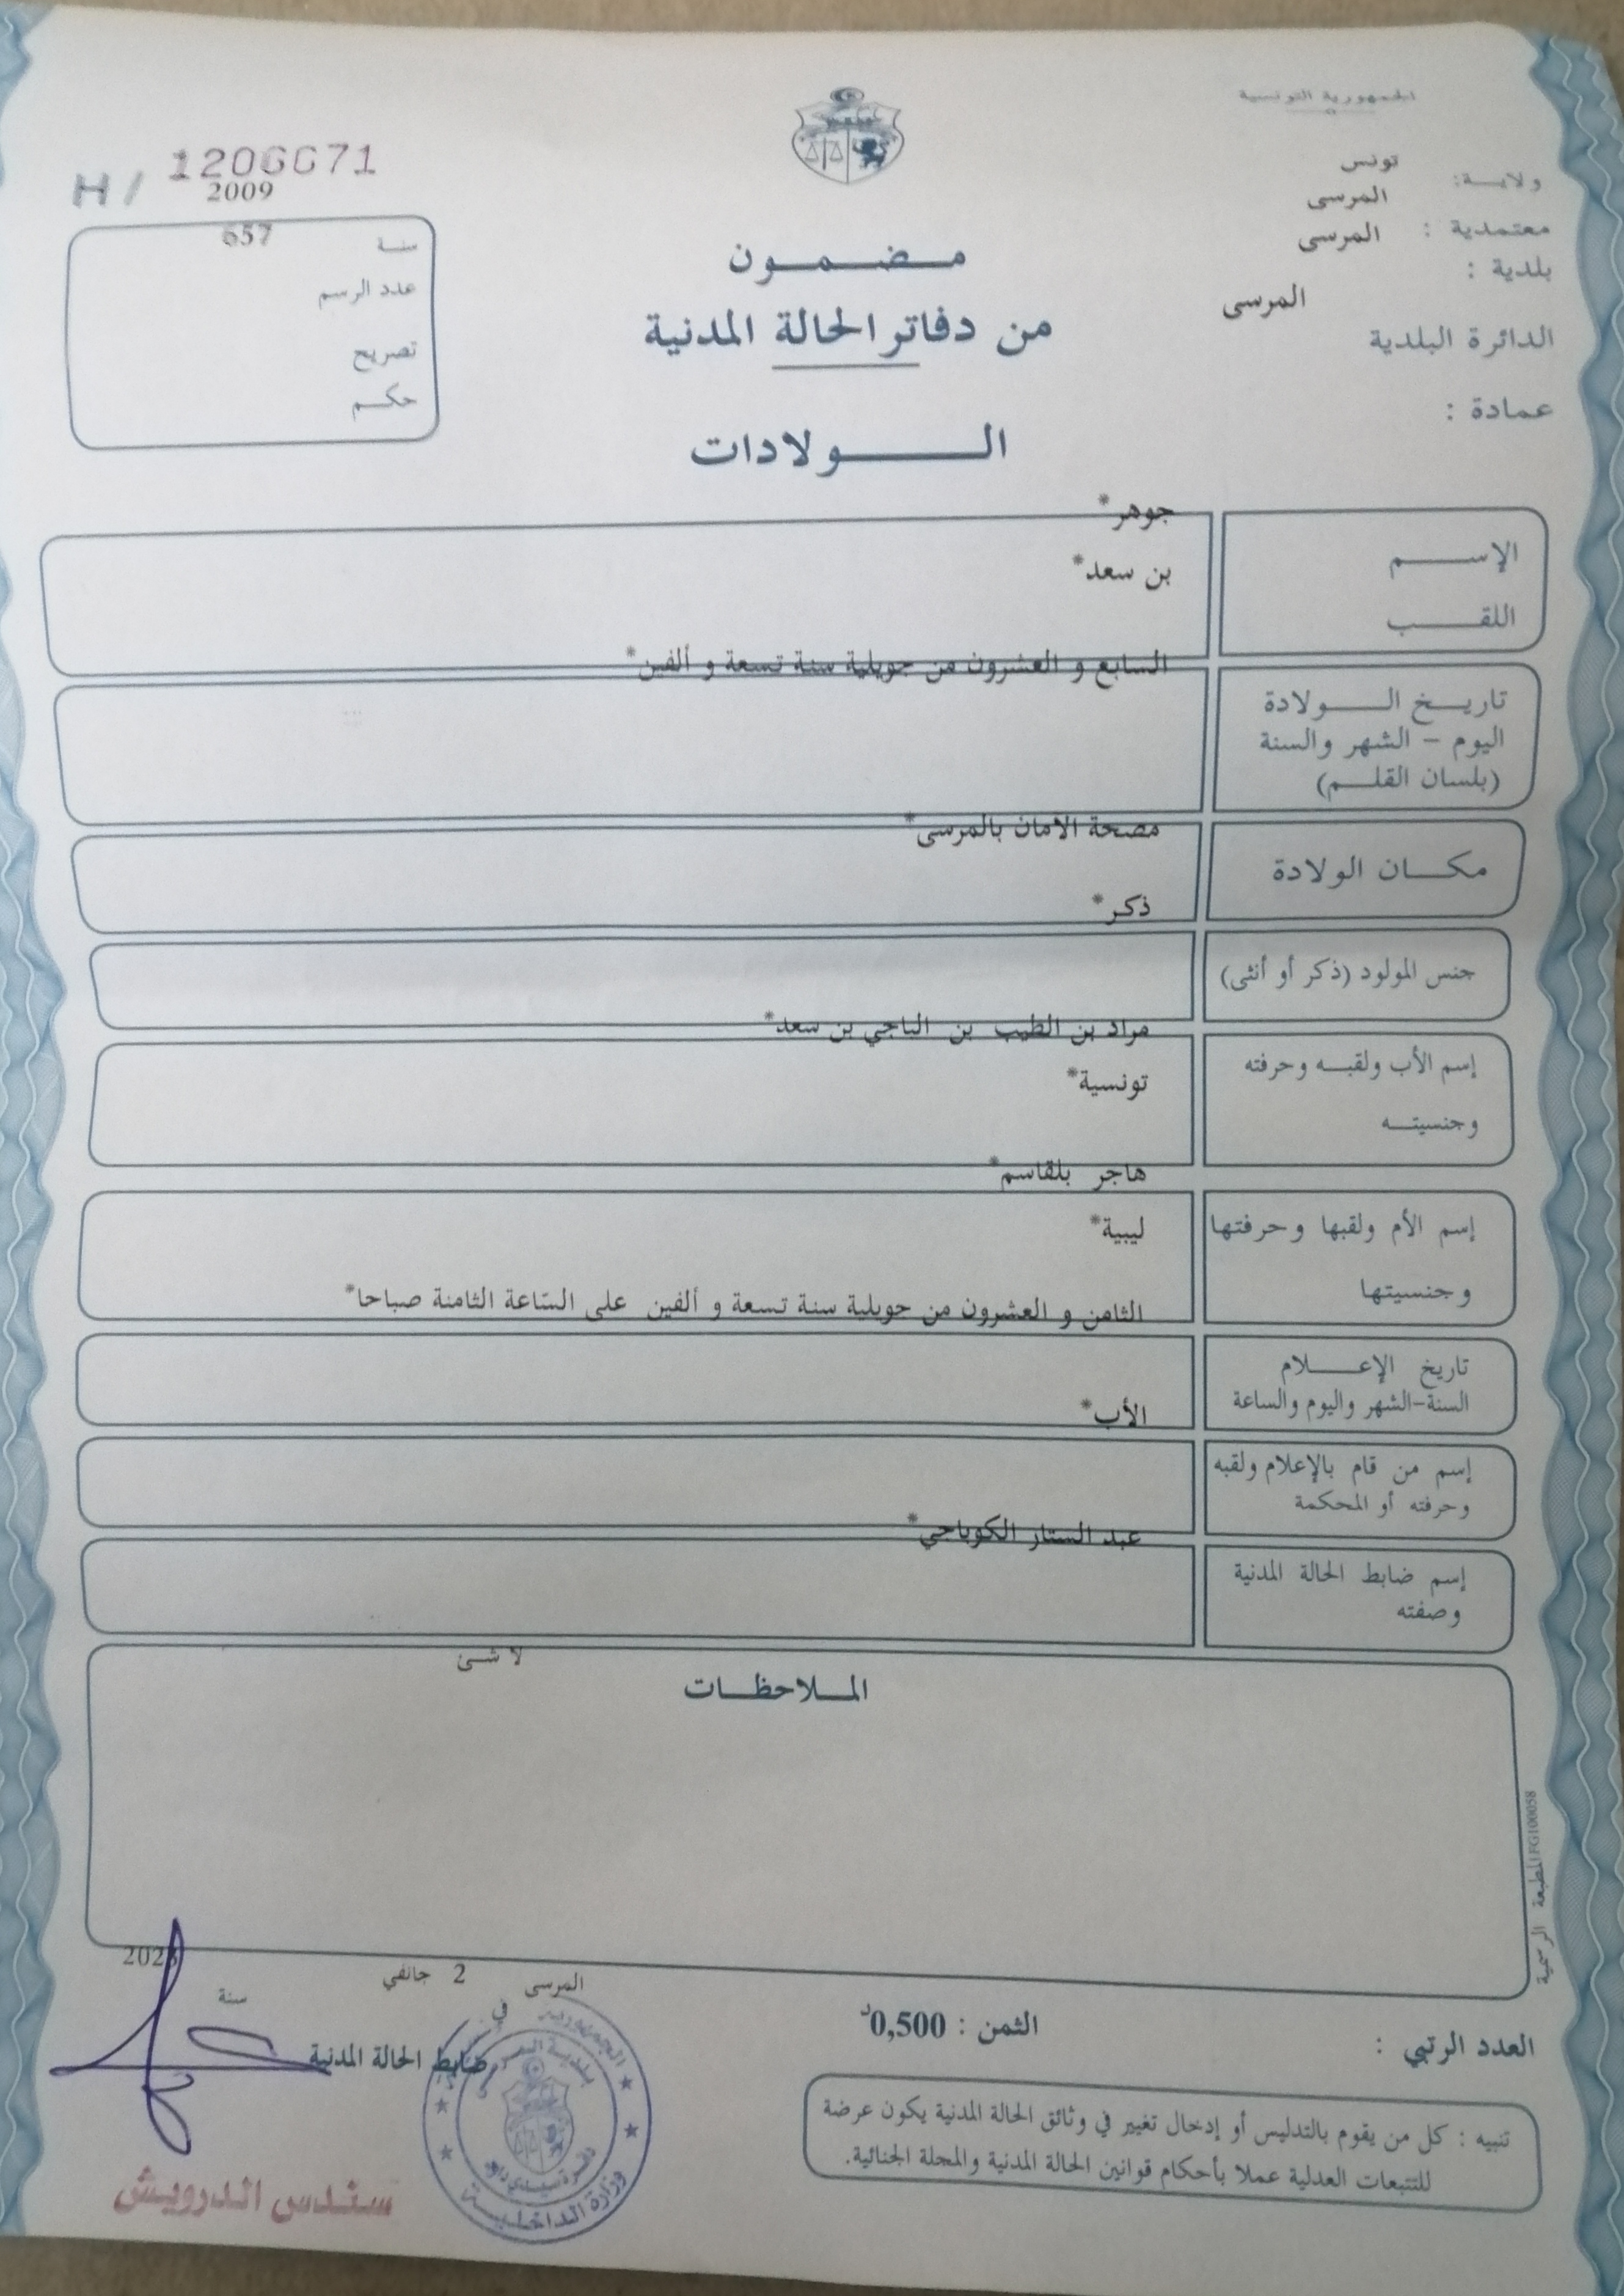 الجمهورية التونسية
ولايـــة: تونس
معتمدية : المرسى
بلدية : المرسى
الدائرة البلدية المرسى
عمادة :
مـضـمـون
من دفاتر الحالة المدنية
الـولادات
H / 1206671
2009
سنة 657
عدد الرسم
تصريح
حكم
جوهر*
الإســم
بن سعد*
اللقـب
السابع و العشرون من جويلية سنة تسعة و ألفين*
تاريـخ الـولادة
اليوم – الشهر والسنة
(بلسان القلـم)
مصحة الأمان بالمرسى*
مكـان الولادة
ذكر*
جنس المولود (ذكر أو أنثى)
مراد بن الطيب بن الباجي بن سعد*
إسم الأب ولقبـه وحرفته
تونسية*
وجنسيتـه
هاجر بلقاسم*
إسم الأم ولقبها وحرفتها
ليبية*
وجنسيتها
الثامن و العشرون من جويلية سنة تسعة و ألفين على السّاعة الثامنة صباحا*
تاريخ الإعـلام
السنة-الشهر واليوم والساعة
الأب*
إسم من قام بالإعلام ولقبه
وحرفته أو المحكمة
عبد الستار الكوباجي*
إسم ضابط الحالة المدنية
وصفته
لا شئ
المـلاحظـات
المطبعة الرسمية FG100058
المرسى 2 جانفي
في سنة
ضابط الحالة المدنية
الثمن : 0,500د
العدد الرتبي :
تنبيه : كل من يقوم بالتدليس أو إدخال تغيير في وثائق الحالة المدنية يكون عرضة
للتتبعات العدلية عملا بأحكام قوانين الحالة المدنية والمجلة الجنائية.
وزارة الداخلية
سندس الدرويش